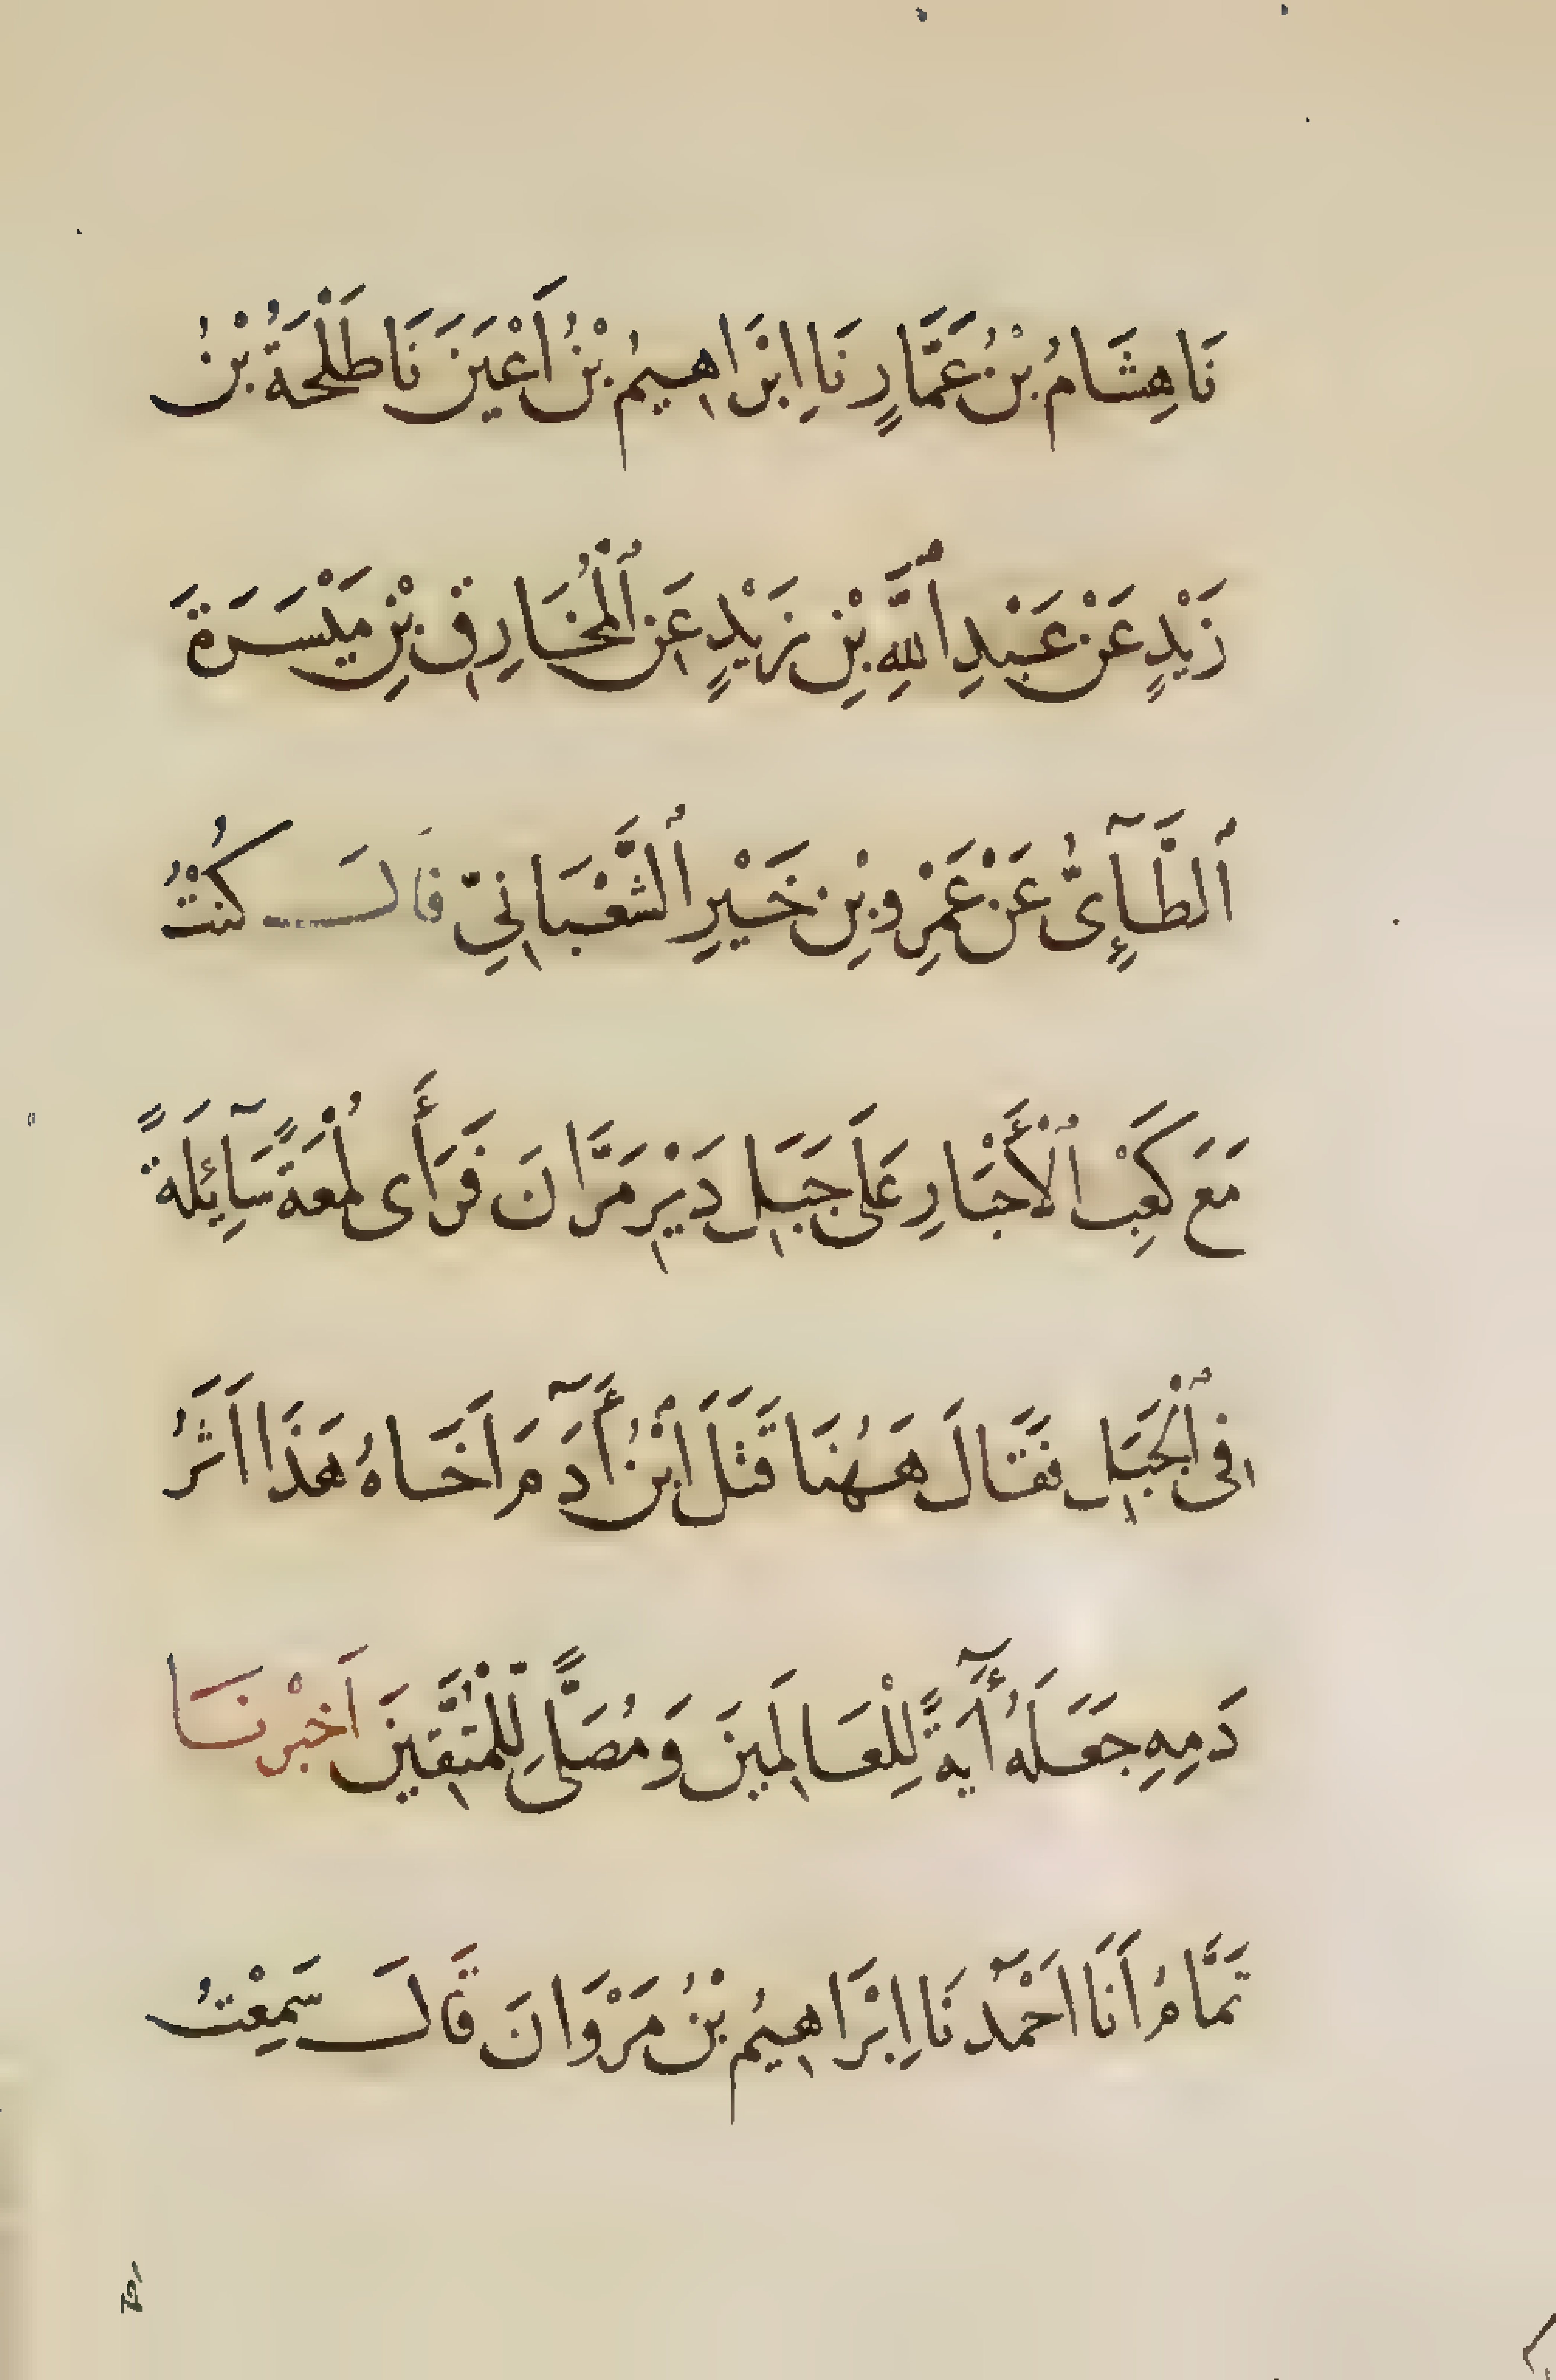 نَا هِشَامُ بْنُ عَمَّارٍ نَا اِبْرَاهِيمُ بْنُ اَعْيَنَ نَا طَلْحَةُ بْنُ
زَيْدٍ عَنْ عَبْدِ ٱللَّهِ بْنِ زَيْدٍ عَنِ ٱلْمُخَارِقِ بْنِ مَيْسَرَةَ
ٱلطَّآئِىِّ عَنْ عَمْرِو بْنِ خَيْرٍ ٱلشَّعْبَانِيِّ قَالَ كُنْتُ
مَعَ كَعْبِ ٱلْأَحْبَارِ عَلَى جَبَلِ دَيْرِ مَرَّانَ فَرَأَى لُمْعَةً سَآئِلَةً
فِى ٱلْجَبَلِ فَقَالَ هَهُنَا قَتَلَ ٱبْنُ أَدَمَ اَخَاهُ هَذَا اَثَرُ
دَمِهِ جَعَلَهُ أَيَةً لِلْعَالَمِينَ وَمُصَلًّى لِلْمُتَّقِينَ اَخْبَرْنَا
تَمَّامُ اَنَا اَحْمَدُ نَا اِبْرَاهِيمُ بْنُ مَرْوَانَ قَالَ سَمِعْتُ